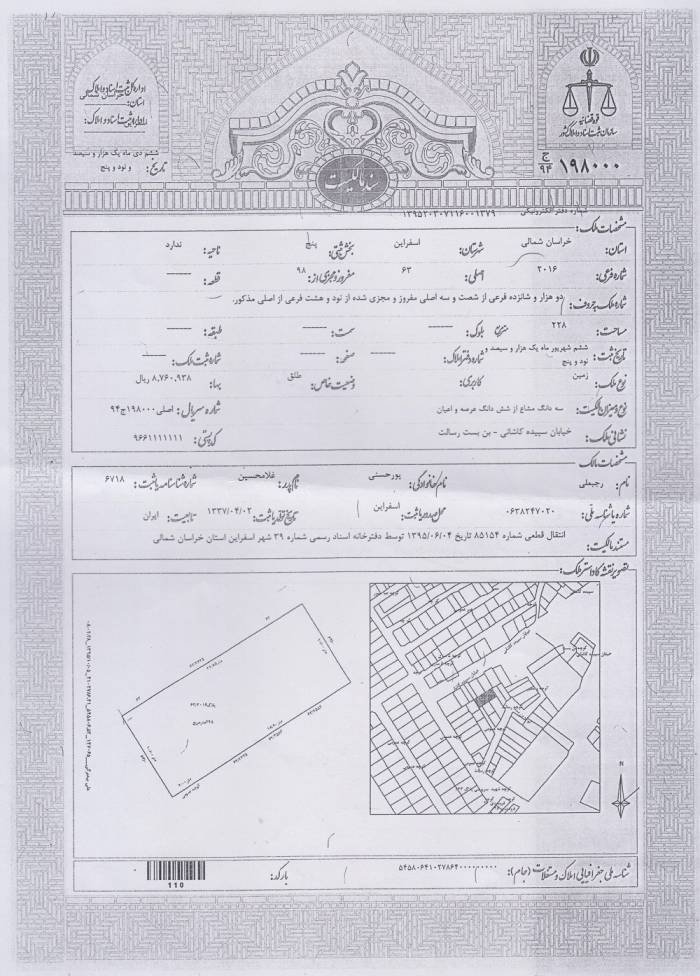 قوه قضائیه
سازمان ثبت اسناد و املاک کشور
۱۹۸۰۰۰ ج ۹۴
اداره کل ثبت اسناد و املاک
استان: خراسان شمالی
اداره ثبت اسناد و املاک:
تاریخ: ششم دی ماه یک هزار و سیصد
و نود و پنج
سند مالکیت
شماره دفتر الکترونیکی: ۱۳۹۵۲۰۳۰۷۱۱۶۰۰۱۲۷۹
مشخصات ملک:
استان: خراسان شمالی شهرستان: اسفراین بخش ثبتی: پنج ناحیه: ندارد
شماره فرعی: ۲۰۱۶ اصلی: ۶۳ مفروز و مجزی از: ۹۸ قطعه: -----
شماره ملک بحروف: دو هزار و شانزده فرعی از شصت و سه اصلی مفروز و مجزی شده از نود و هشت فرعی از اصلی مذکور.
مساحت: ۲۲۸ بلوک: ----- سمت: ----- طبقه: -----
تاریخ ثبت: ششم شهریور ماه یک هزار و سیصد و نود و پنج شماره دفتر املاک: ----- صفحه: ----- شماره ثبت ملک: -----
نوع ملک: زمین کاربری: وضعیت خاص: طلق بها: ۸,۷۶۰,۹۳۸ ریال
نوع و میزان مالکیت: سه دانگ مشاع از شش دانگ عرصه و اعیان شماره سریال: اصلی ۱۹۸۰۰۰ ج ۹۴
نشانی ملک: خیابان سپیده کاشانی - بن بست رسالت کد پستی: ۹۶۶۱۱۱۱۱۱۱
مشخصات مالک:
نام: رجبعلی نام خانوادگی: پورحسنی نام پدر: غلامحسین شماره شناسنامه یا ثبت: ۶۷۱۸
شماره یا شناسه ملی: ۰۶۳۸۲۴۷۰۲۰ محل صدور یا ثبت: اسفراین تاریخ تولد یا ثبت: ۱۳۳۷/۰۴/۰۲ تابعیت: ایران
مستند مالکیت: انتقال قطعی شماره ۸۵۱۵۴ تاریخ ۱۳۹۵/۰۶/۰۴ توسط دفترخانه اسناد رسمی شماره ۳۹ شهر اسفراین استان خراسان شمالی
تصویر نقشه کاداستر ملک:
N
شناسه ملی جغرافیایی املاک و مستغلات (جام):
بارکد:
110